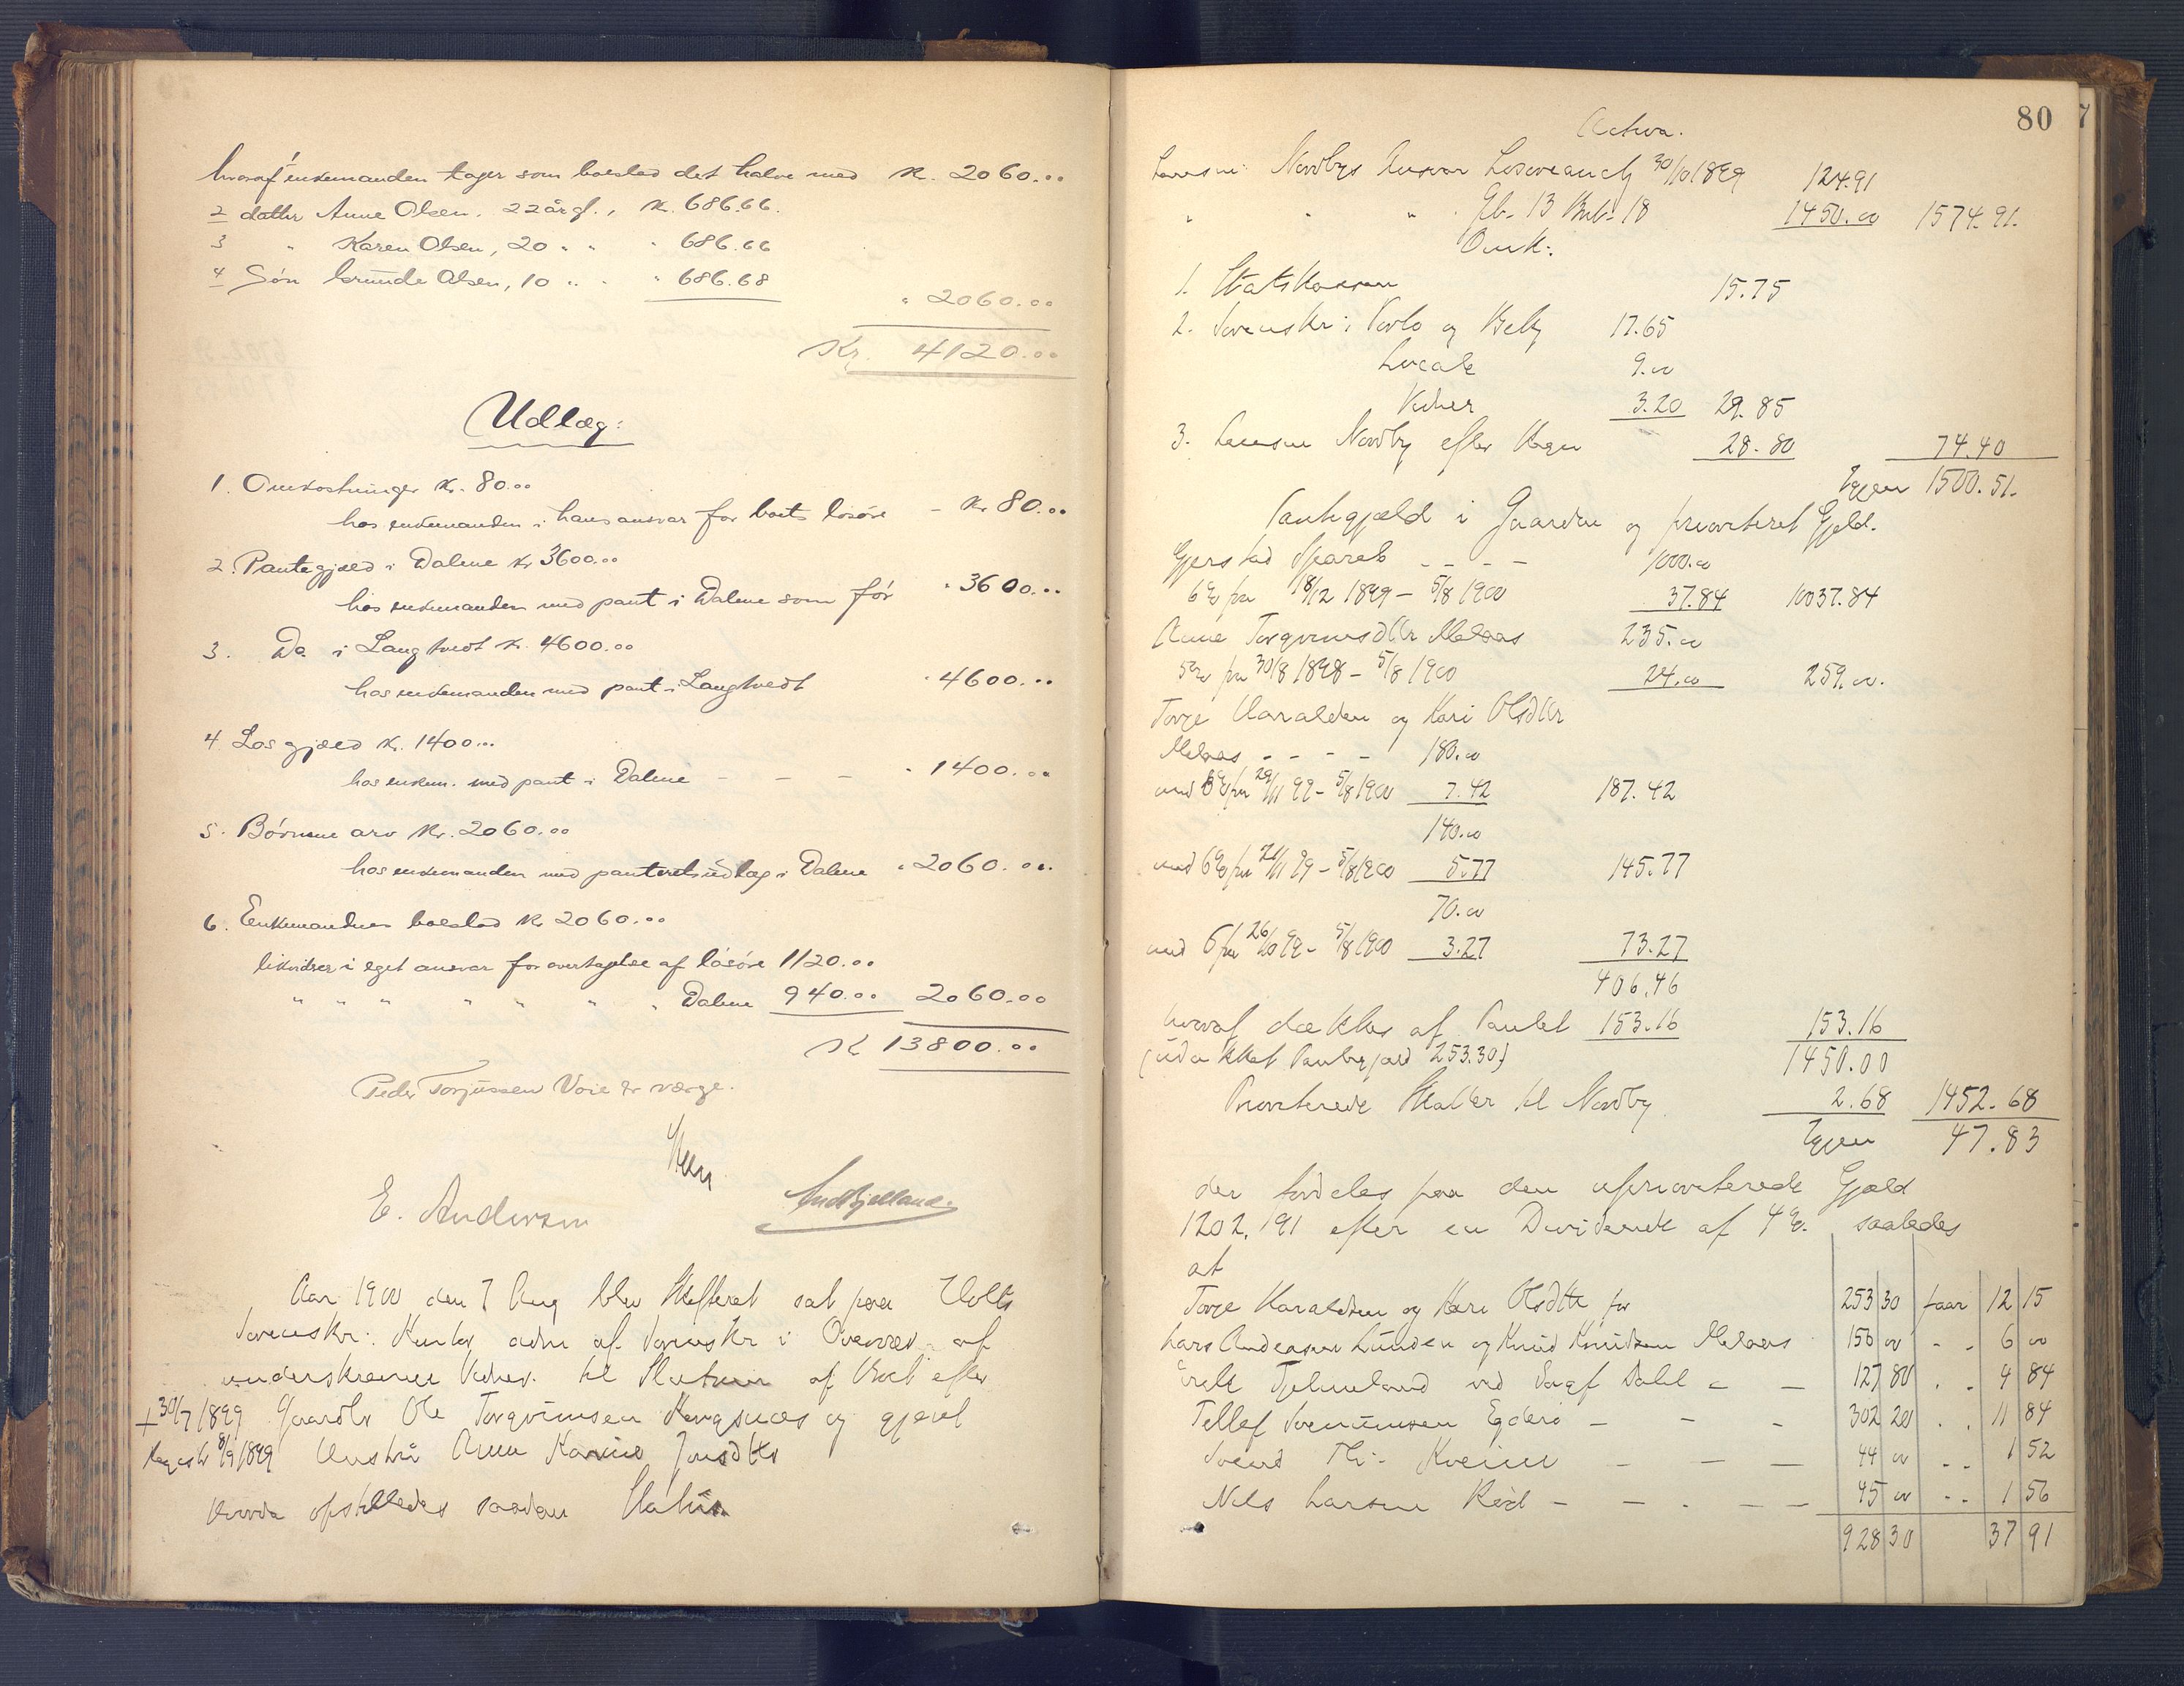 hvoraf enkemanden tager som boeslod det halve med Kr. 2060.00
2 datter Anne Olsen, 22 år gl., Kr. 686.66.
3 " Karen Olsen, 20 " " " 686.66
4 Søn Grunde Olsen, 10 " " " 686.68
" 2060.00
Kr. 4120.00
Udlæg:
1. Omkostninger Kr. 80.00
hos enkemanden i hans ansvar for boets løsøre - Kr 80.00
2. Pantegjæld i Dalene Kr 3600.00
hos enkemanden med pant i Dalene som før " 3600.00
3. Do i Langtvedt Kr. 4600.00
hos enkemanden med pant i Langtvedt " 4600.00
4. Løs gjæld Kr. 1400.00
hos enkem. med pant i Dalene - - - " 1400.00
5. Børnene arv Kr. 2060.00
hos enkemanden med panteretsudlæg i Dalene " 2060.00
6. Enkemandens boeslod Kr 2060.00
likvideres i eget ansvar for overtagelse af løsøre 1120.00
" " " " " " " Dalene 940.00 2060.00
Kr 13800.00
Peder Torjussen Voie er værge.
E. Andersen
Aar 1900 den 7 Aug blev Skifteret sat paa Holts
Sorenskr: Kontor adm af Sorenskr i Overvær af
underskrevne Vidner til Slutning af Boet efter
+ 30/7 1899 Gaardbr Ole Torgrimsen og gjenl
Registr 8/9 1899 Hustru Anne Karine Jonsdtr
Hvorda opstilledes saadan Status
80
Activa.
Lensm: Nordbys Ansvar Løsøreauct 30/10 1899 124.91
" " " Gb. 13 Bnr. 18 1450.00 1574.91.
Omk:
1. Statskassen 15.75
2. Sorenskr: Porto og Bekj 17.65
Locale 9.00
Vidner 3.20 29.85
3. Lensm Nordby efter Regn 28.80 74.40
Igjen 1500.51.
Pantegjæld i Gaarden og prioriteret Gjæld.
Gjerstad Spareb - - - - 1000.00
6% fra 18/12 1899 - 5/8 1900 37.84 10037.84
Anne Torgrimsdtr Melaas 235.00
5% fra 30/8 1898 - 5/8 1900 24.00 259.00.
Torje Haraldsen og Kari Olsdtr
Melaas - - - - 180.00
med 6% fra 29/11 99 - 5/8 1900 7.42 187.42
140.00
med 6% fra 21/11 99 - 5/8 1900 5.77 145.77
70.00
med 6 fra 26/10 99 - 5/8 1900 3.27 73.27
406.46
hvoraf dækkes af Pantet 153.16 153.16
(udækket Pantegjæld 253.30) 1450.00
Prioriterede Skatter til Nordby 2.68 1452.68
Igjen 47.83
der fordeles paa den uprioriterede Gjæld
1202,191 efter en Dividende af 4%. saaledes
at
Torje Haraldsen og Kari Olsdtr for 253 30 faar 12 15
Lars Andreasen Lunden og Knud Knudsen Melaas 150 00 - - 6 00
ved Sagf Dahl - - 127 80 " " 4 84
Tellef Egderø - - - 302 20 " " 11 84
Svend Th: Kveim - - - 44 00 " " 1 52
Nils Larsen Rød - - - - - 45 00 " " 1 56
928 30 37 91